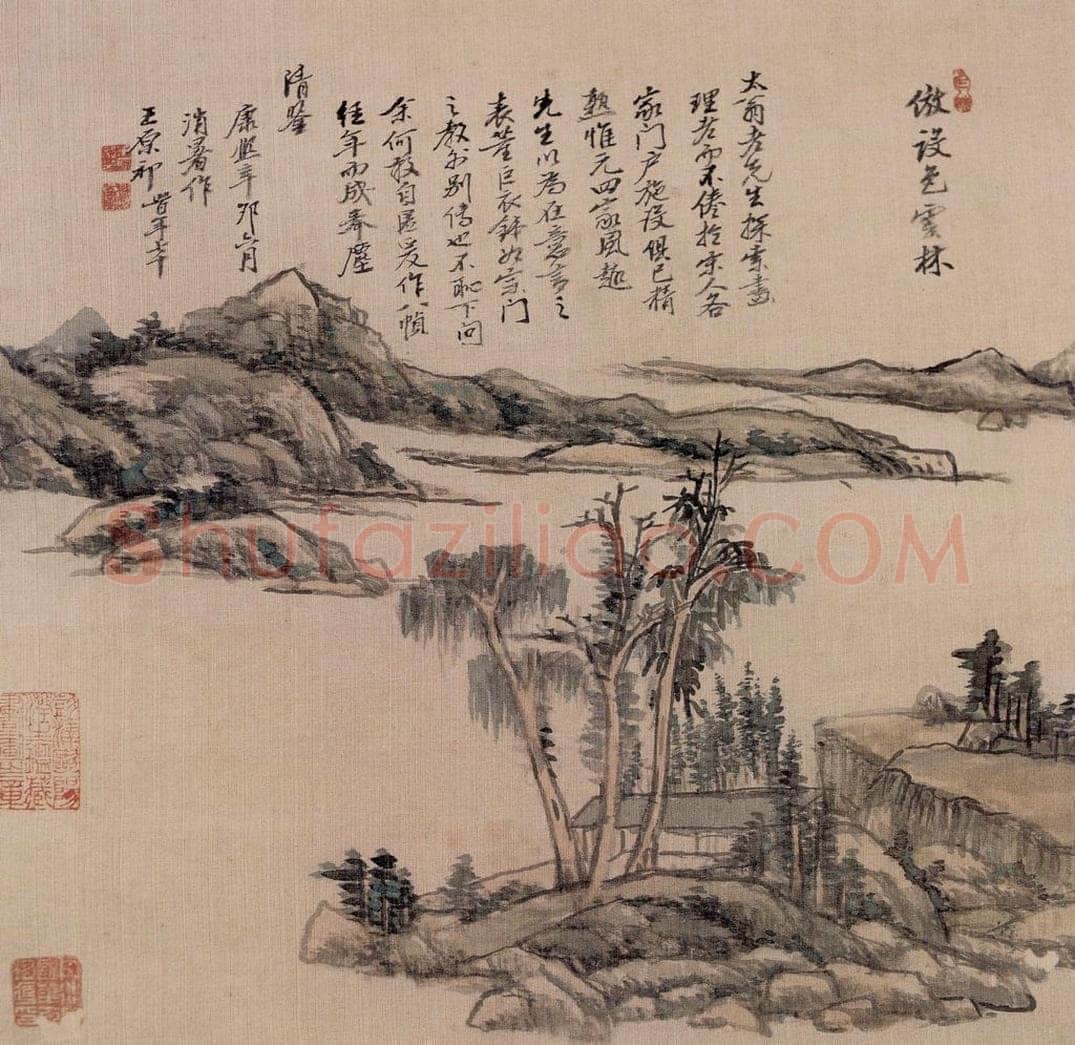 倣设色雲林
太翁老先生探索畫
理老而不倦於宋人各
家门户施设俱已精
熟惟元四家風趣
先生以为在意言之
表董巨衣鉢如宗门
之教外别傳也不耻下问
余何敢自匿爰作八幀
经年而成奉塵
清鉴
康熙辛卯六月
消暑作
王原祁 時年七十
Shufaziliao.COM